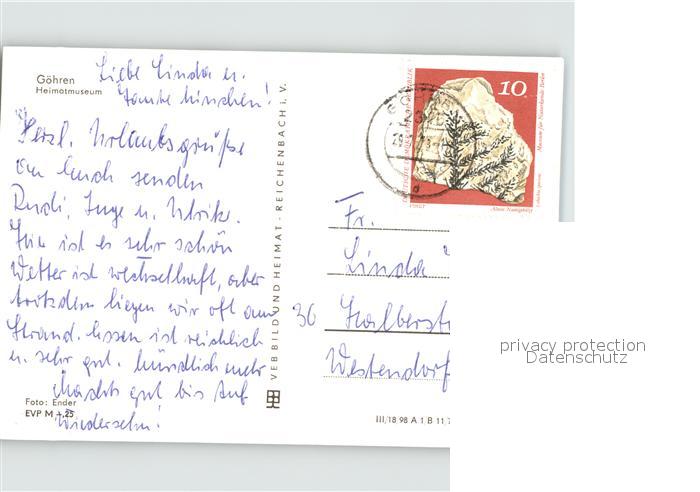 Göhren
Heimatmuseum
Liebe Linda u.
Tante Minchen!
Herzl. Urlaubsgrüße
an Euch senden
Rudi, Inge u. Ulrike.
Hier ist es sehr schön
Wetter ist wechselhaft, aber
trotzdem liegen wir oft am
Strand. Essen ist reichlich
u. sehr gut. Mündlich mehr
Machts gut bis Auf
Wiedersehn!
Foto: Ender
EVP M -,25
VEB BILD UND HEIMAT - REICHENBACH i. V.
10
Museum für Naturkunde Berlin
Fr.
Linda
36 Halberst
Westendorf
III/18 98 A 1 B 11
privacy protection
Datenschutz